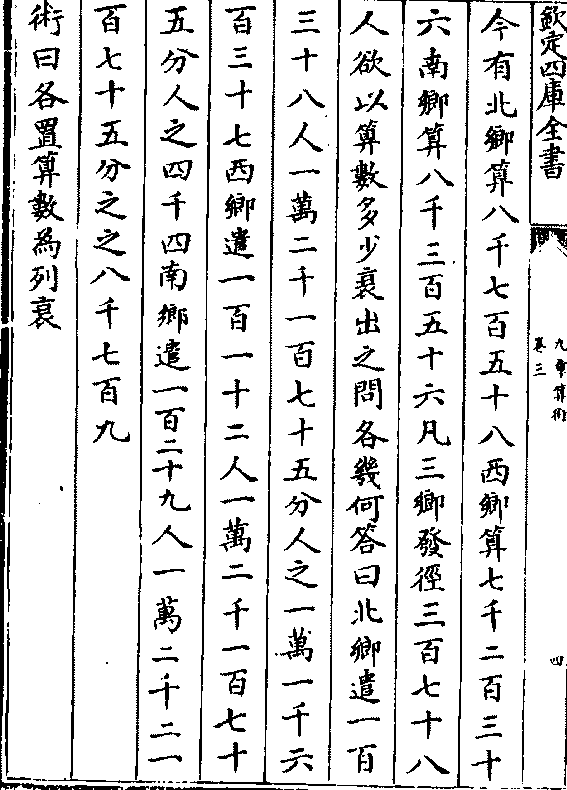 欽定四庫全書
九章算術
卷三
四
今有北鄉算八千七百五十八西鄉算七千二百三十
六南鄉算八千三百五十六凡三鄉發徑三百七十八
人欲以算數多少衰出之問各幾何答曰北鄉遣一百
三十八人一萬二千一百七十五分人之一萬一千六
百三十七西鄉遣一百一十二人一萬二千一百七十
五分人之四千四南鄉遣一百二十九人一萬二千二一
百七十五分之之八千七百九
術曰各置算數為列衰